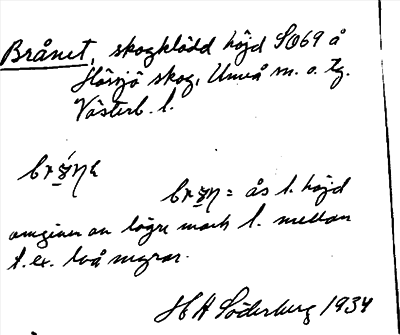 Brånet, skogklädd höjd SO 69 å
Hössjö skog, Umeå m. o. tg.
Västerb. l.
ås l. höjd
omgiven av lägre mark l. mellan
t. ex. två myrar.
H H Söderberg 1934